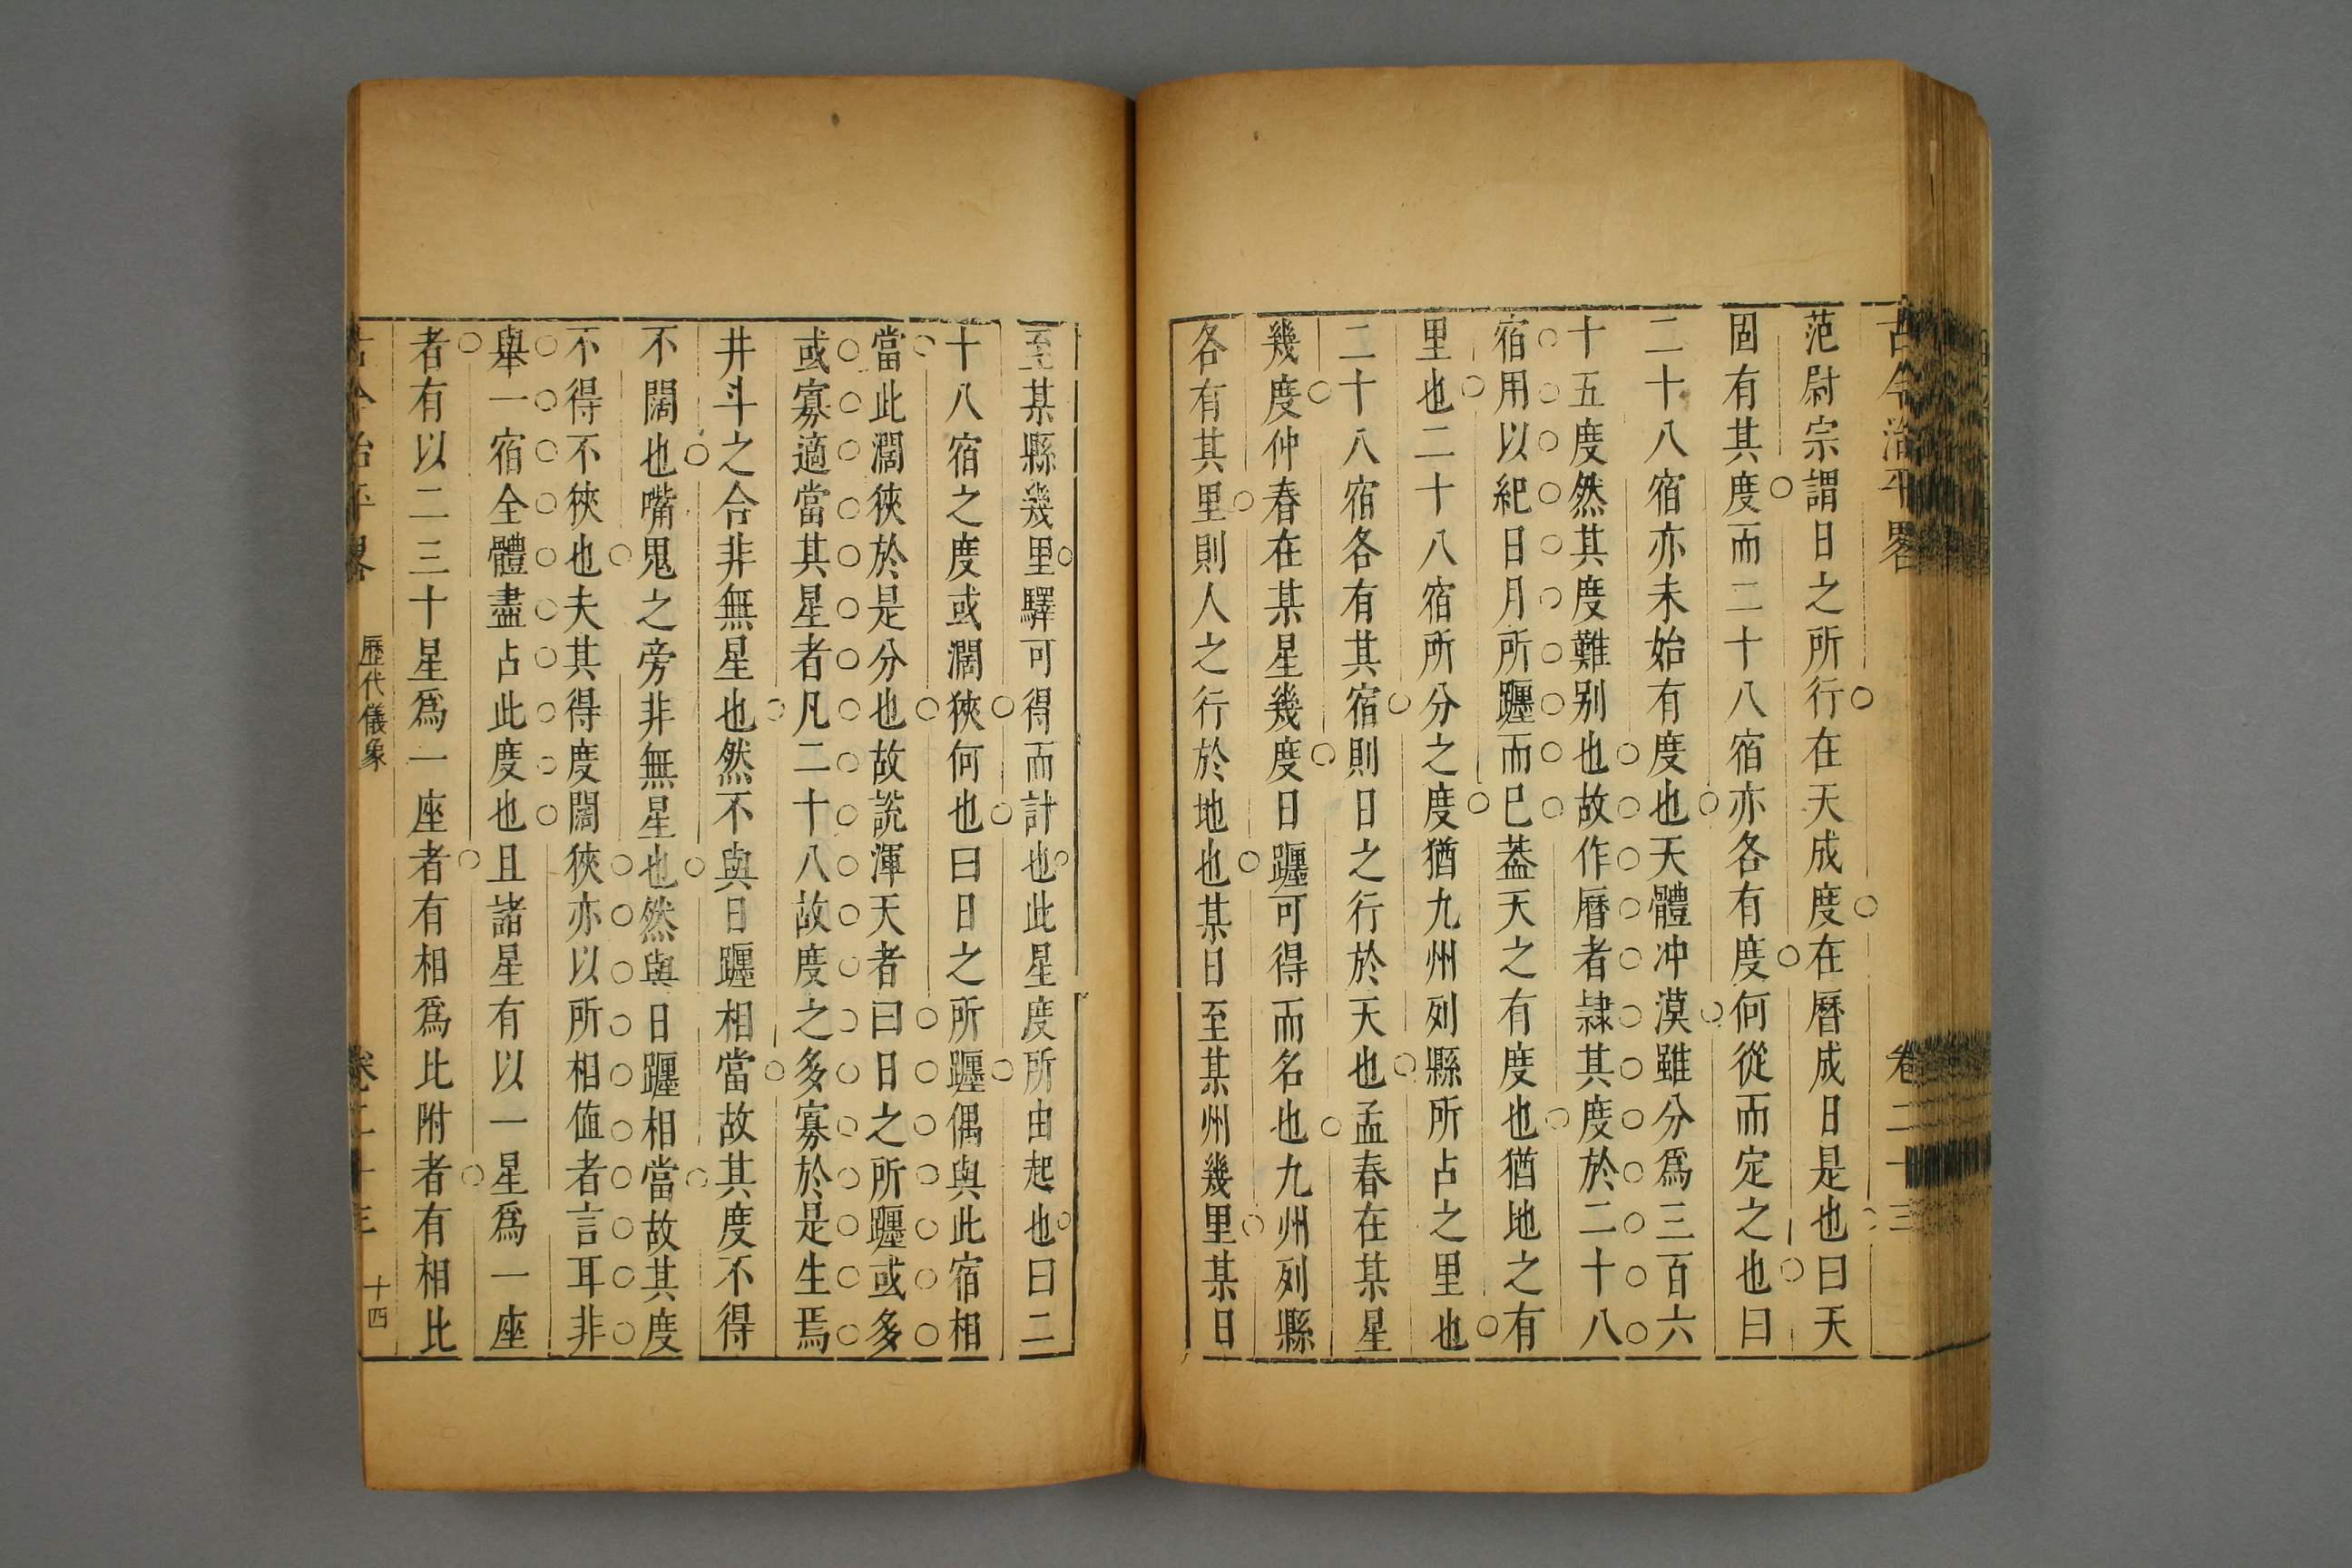 古今治平畧 卷二十三
范尉宗謂日之所行在天成度在曆成日是也曰天
固有其度而二十八宿亦各有度何從而定之也曰
二十八宿亦未始有度也天體冲漠雖分爲三百六
十五度然其度難別也故作曆者隷其度於二十八
宿用以紀日月所躔而巳葢天之有度也猶地之有
里也二十八宿所分之度猶九州列縣所占之里也
二十八宿各有其宿則日之行於天也孟春在某星
幾度仲春在某星幾度日躔可得而名也九州列縣
各有其里則人之行於地也某日至某州幾里某日
至某縣幾里驛可得而計也此星度所由起也曰二
十八宿之度或濶狹何也曰日之所躔偶與此宿相
當此濶狹於是分也故說渾天者曰日之所躔或多
或寡適當其星者凡二十八故度之多寡於是生焉
井斗之合非無星也然不與日躔相當故其度不得
不闊也嘴鬼之旁非無星也然與日躔相當故其度
不得不狹也夫其得度闊狹亦以所相值者言耳非
舉一宿全體盡占此度也且諸星有以一星爲一座
者有以二三十星爲一座者有相爲比附者有相比
古今治平畧 歷代儀象 卷二十三 十四